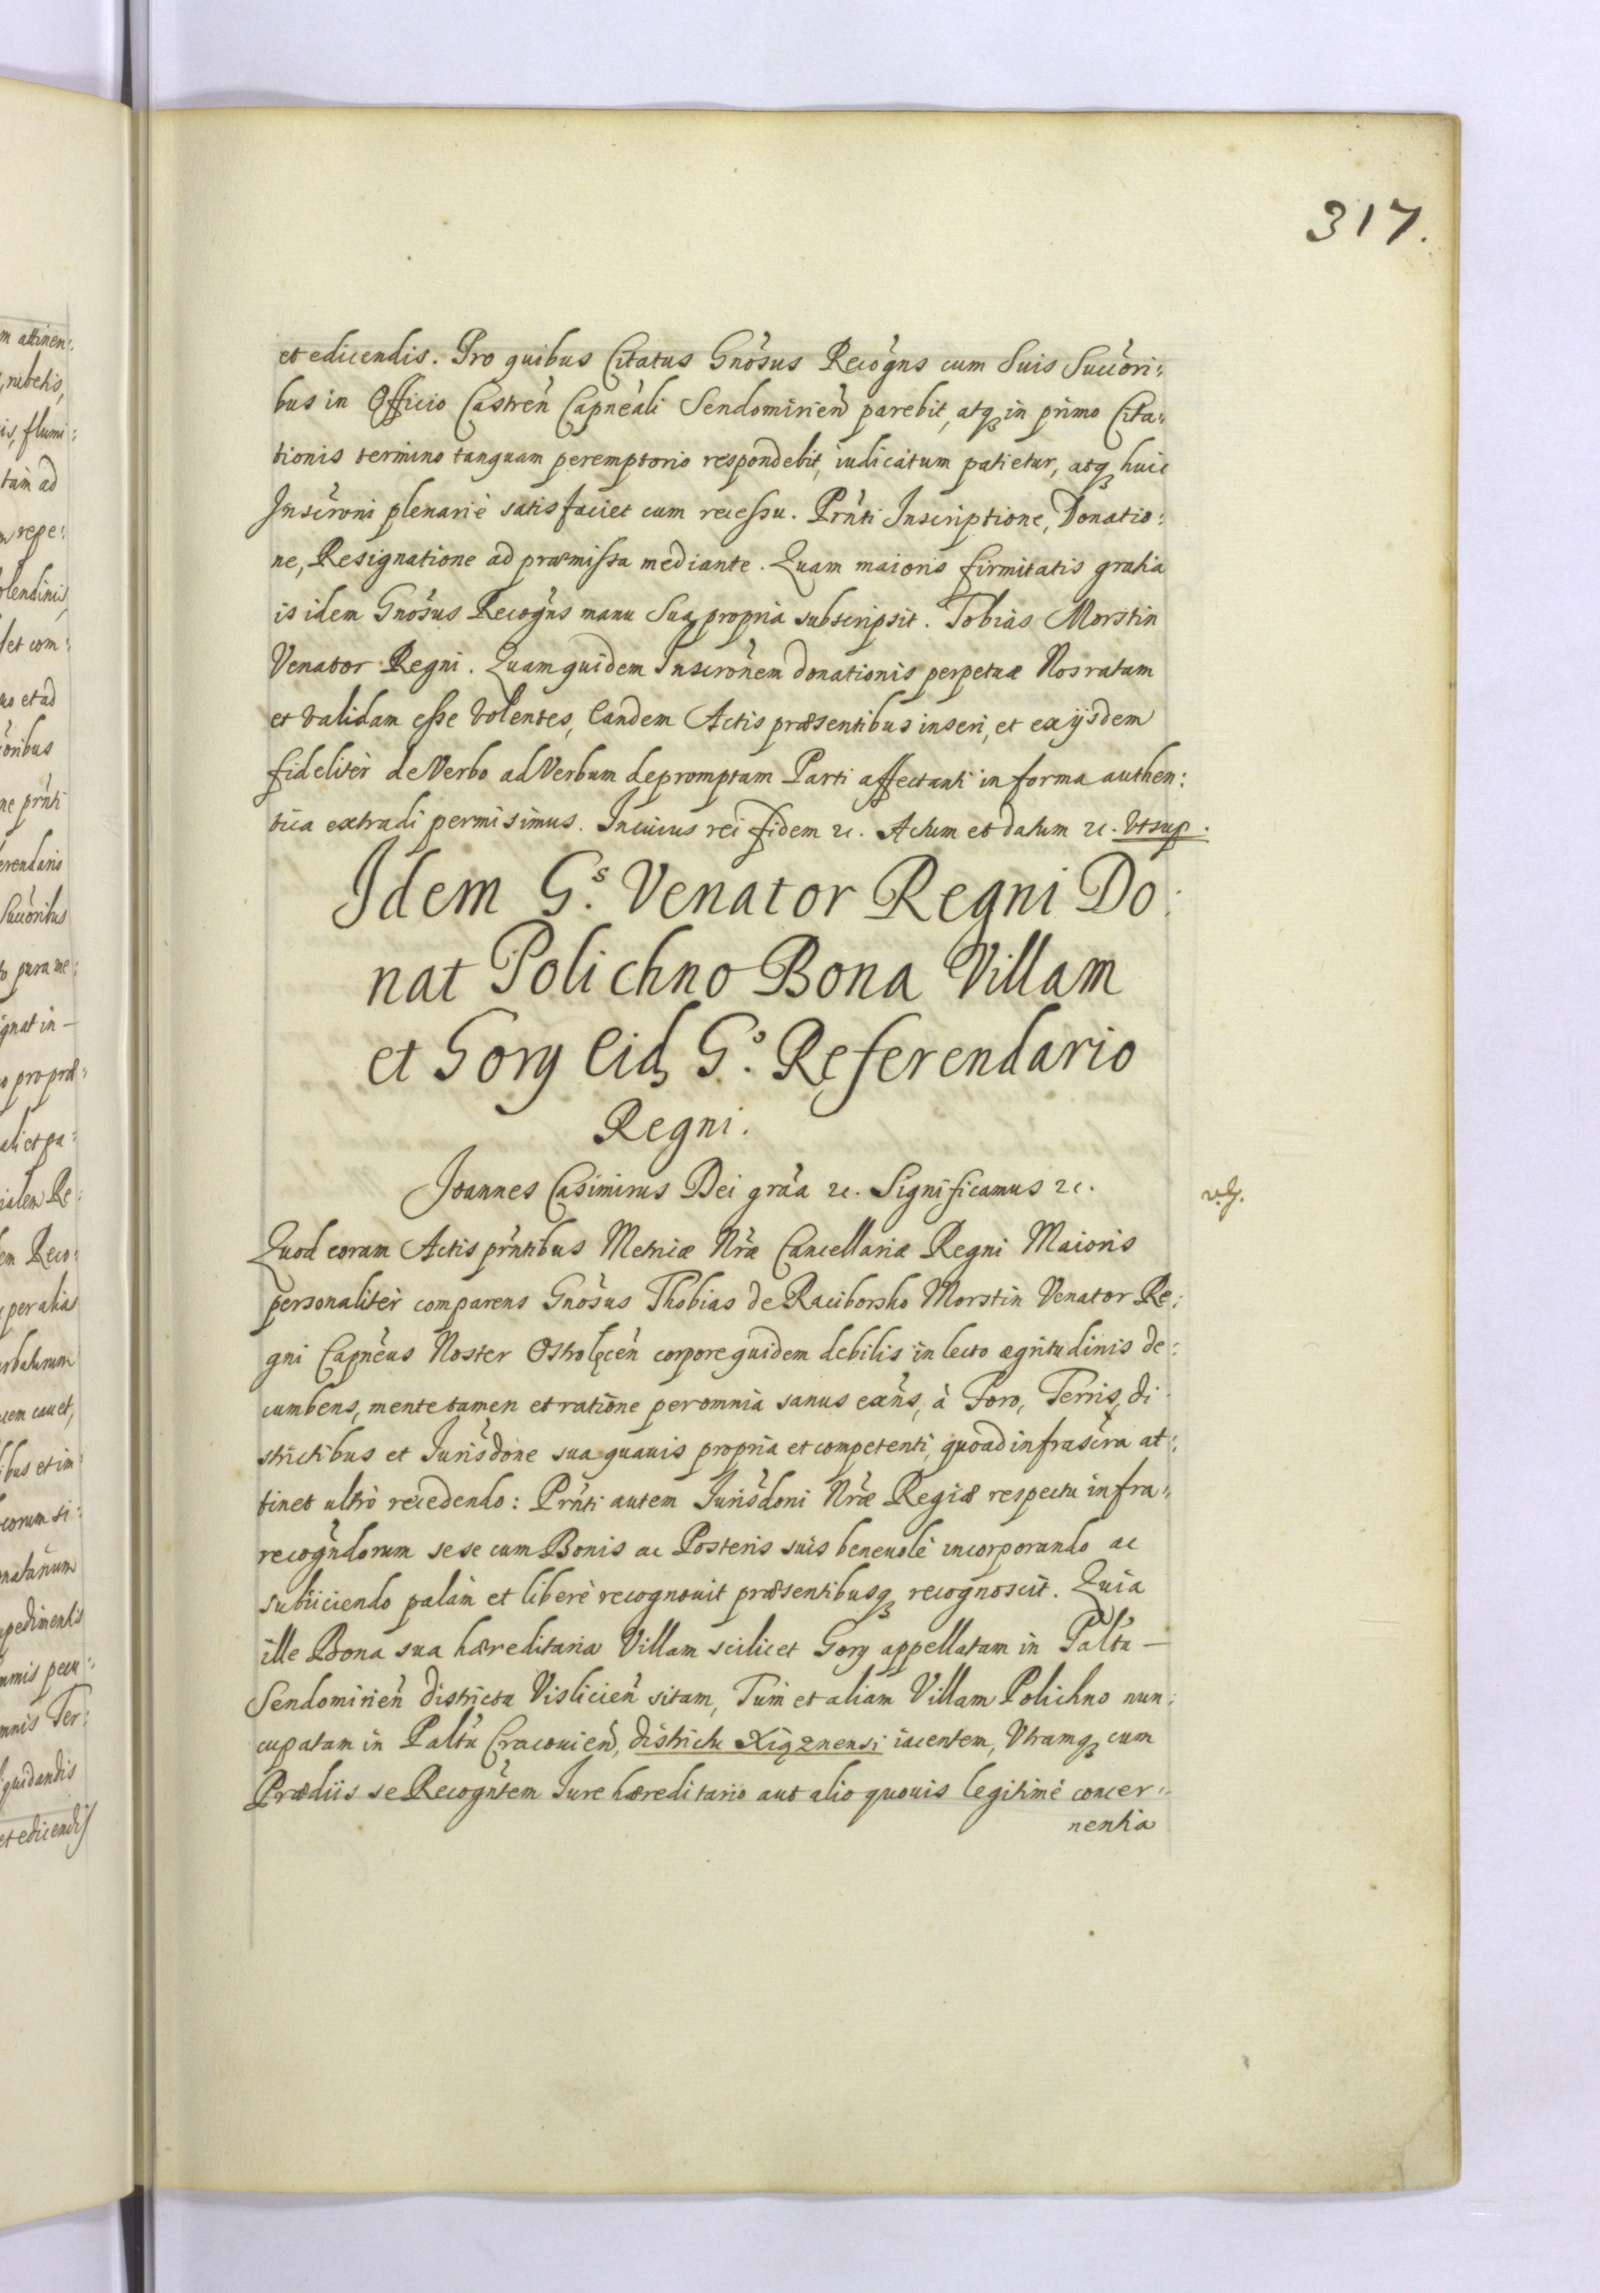 317.
et edicendis. Pro quibus Citatus Gnõsus Recõgns cum Suis Succõri:
bus in Officio Castreñ Capneãli Sendomirieñ parebit, atq₃ in primo Cita:
tionis termino tanquam peremptorio respondebit, iudicatum patietur, atq₃ huic
Inscr̃oni plenariè satisfaciet cum recessu. Prñti Inscriptione, Donatio:
ne, Resignatione ad præmissa mediante. Quam maioris firmitatis gratia
is idem Gnõsus Recogñs manu Sua propria subscripsit. Tobias Morstin
Venator Regni. Quamquidem Inscrõnem donationis perpetuæ Nos ratam
et validam esse volentes, Eandem Actis præsentibus inseri, et ex ijsdem
fidelitèr de Verbo ad Verbum depromptam Parti affectanti in forma authen:
tica extradi permisimus. In cuius rei fidem &c. Actum et datum &c. Vtsup.
Idem G.s Venator Regni Do:
nat Polichno Bona Villam
et Gory Eid₃ G.o Referendario
Regni.
Ioannes Casimirus Dei grãa &c. Significamus &c.
Quod coram Actis prñtibus Metricæ Nrãe Cancellariæ Regni Maioris
personalitèr comparens Gnõsus Thobias de Raciborsko Morstin Venator Re:
gni Capnẽus Noster Ostrołęceñ corpore quidem debilis in lecto ægritudinis de:
cumbens, mente tamen et ratione per omnia sanus exñs, à Foro, Terris, di
strictibus et Jurisdõne sua quauis propria et competenti, quoad infrascr̃a at:
tinet ultrò recedendo: Prñti autem Jurisdõni Nrãe Regiæ respectu infra:
recogñdorum sese cum Bonis ac Posteris suis beneuolè incorporando ac
subiiciendo palàm et liberè recognouit præsentibusq₃ recognoscit. Quia
ille Bona sua hæreditaria Villam scilicet Gory appellatam in Paltũ —
Sendomirieñ districtu Vislicieñ sitam, Tum et aliam Villam Polichno nun:
cupatam in Paltũ Cracouieñ, districtu Xiąznensi iacentem, Vtramq₃ cum
Prædiis se Recogñtem Iure hæreditario aut alio quouis legitimè concer:
nentia